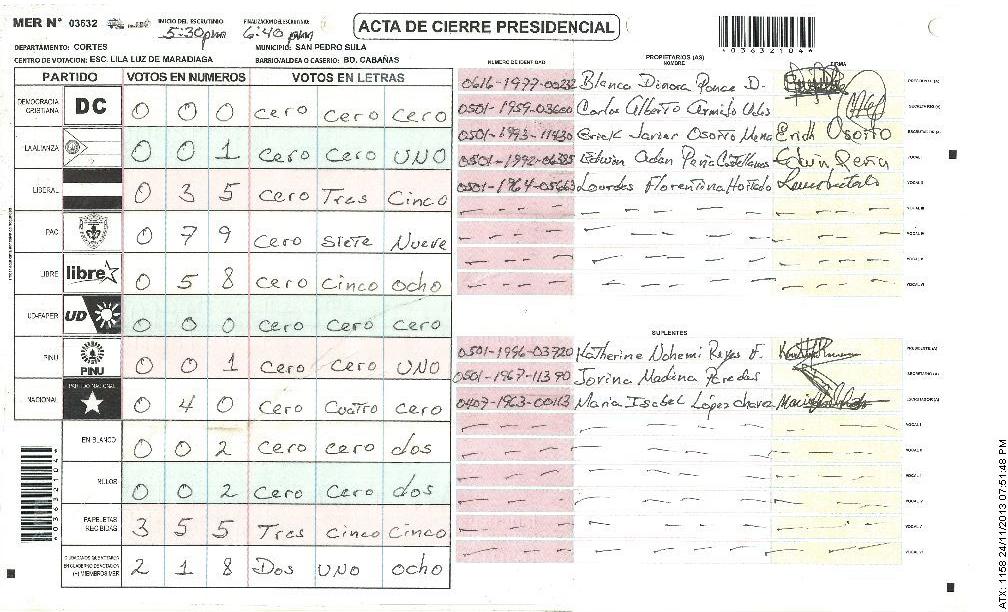 MER N° 03632
INICIO DEL ESCRUTINIO
5:30pm
FINALIZACION DEL ESCRUTINIO:
6:40 pm
ACTA DE CIERRE PRESIDENCIAL
*03632104*
DEPARTAMENTO: CORTES
MUNICIPIO: SAN PEDRO SULA
CENTRO DE VOTACION: ESC. LILA LUZ DE MARADIAGA
BARRIO/ALDEA O CASERIO: BO. CABAÑAS
PARTIDO VOTOS EN NUMEROS VOTOS EN LETRAS
DEMOCRACIA CRISTIANA DC 0 0 0 cero cero cero
LA ALIANZA 0 0 1 cero cero UNO
LIBERAL 0 3 5 cero Tres Cinco
PAC 0 7 9 cero siete Nueve
LIBRE libre 0 5 8 cero cinco ocho
UD-FAPER UD 0 0 0 cero cero cero
PINU PINU 0 0 1 cero cero UNO
NACIONAL PARTIDO NACIONAL 0 4 0 cero Cuatro cero
EN BLANCO 0 0 2 cero cero dos
NULOS 0 0 2 cero cero dos
PAPELETAS RECIBIDAS 3 5 5 Tres cinco Cinco
(+) MIEMBROS MER 2 1 8 Dos UNO ocho
NUMERO DE IDENTIDAD
PROPIETARIOS (AS)
NOMBRE
FIRMA
0616-1977-00232 Blanca Dinora Ponce D. PRESIDENTE (A)
0501-1959-03600 Carlos Alberto SECRETARIO (A)
0501-1993-11430 Erick Javier Osorto Mena Erick Osorto ESCRUTADOR (A)
0501-1992-06385 Edwin Adan Peña Castellanos Edwin Peña VOCAL I
0501-1964-05663 Lourdes Florentina Hurtado VOCAL II
VOCAL III
VOCAL IV
VOCAL V
VOCAL VI
SUPLENTES
0501-1996-03720 Katherine Nohemi Reyes F. PRESIDENTE (A)
0501-1967-11390 Jovina Madina Paredes SECRETARIO (A)
0407-1963-00113 Maria Isabel López Chavez ESCRUTADOR (A)
VOCAL I
VOCAL II
VOCAL III
VOCAL IV
VOCAL V
VOCAL VI
*03632104*
ATX: 1158 24/11/2013 07:51:48 PM